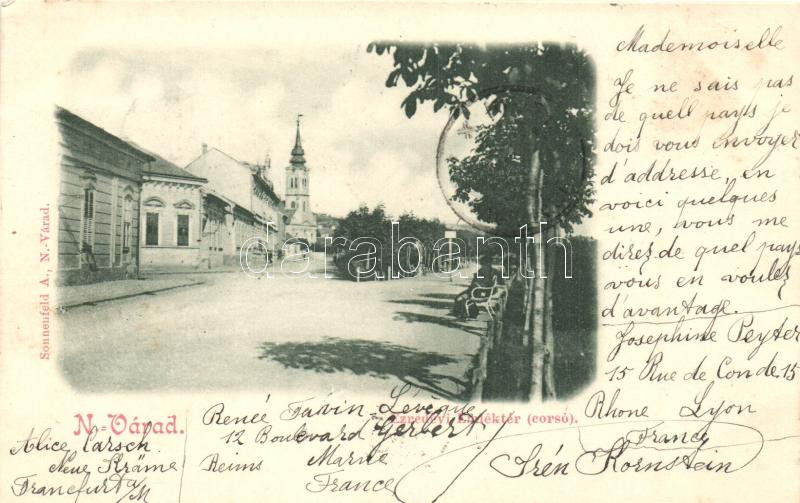 Mademoiselle
Je ne sais pas
de quell pays je
dois vous envoyer
d'addresse, en
voici quelques
une, vous me
direz de quel pays
vous en voulez
d'avantage.
Josephine Peyter
15 Rue de Condé 15
Rhone Lyon
France
Irén Kornstein
Sonnenfeld A., N.-Várad.
darabanth
N-Várad.
Ezredévi Emléktér (corsó).
Reneé Favin Leveque
12 Boulevard Gerbert
Reims Marne
France
Alice Carsch
Neue Kräme
Francfurt a/M